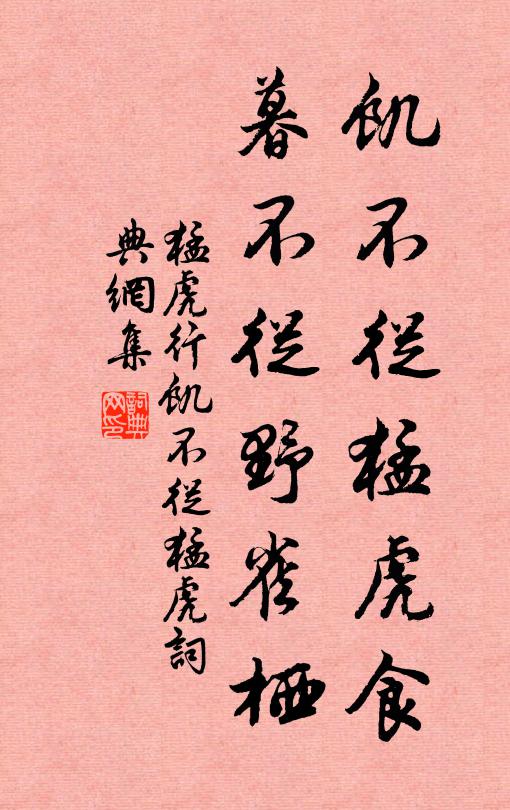 飢不從猛虎食
暮不從野雀栖
猛虎行飢不從猛虎詞
典網集
詞典
网印